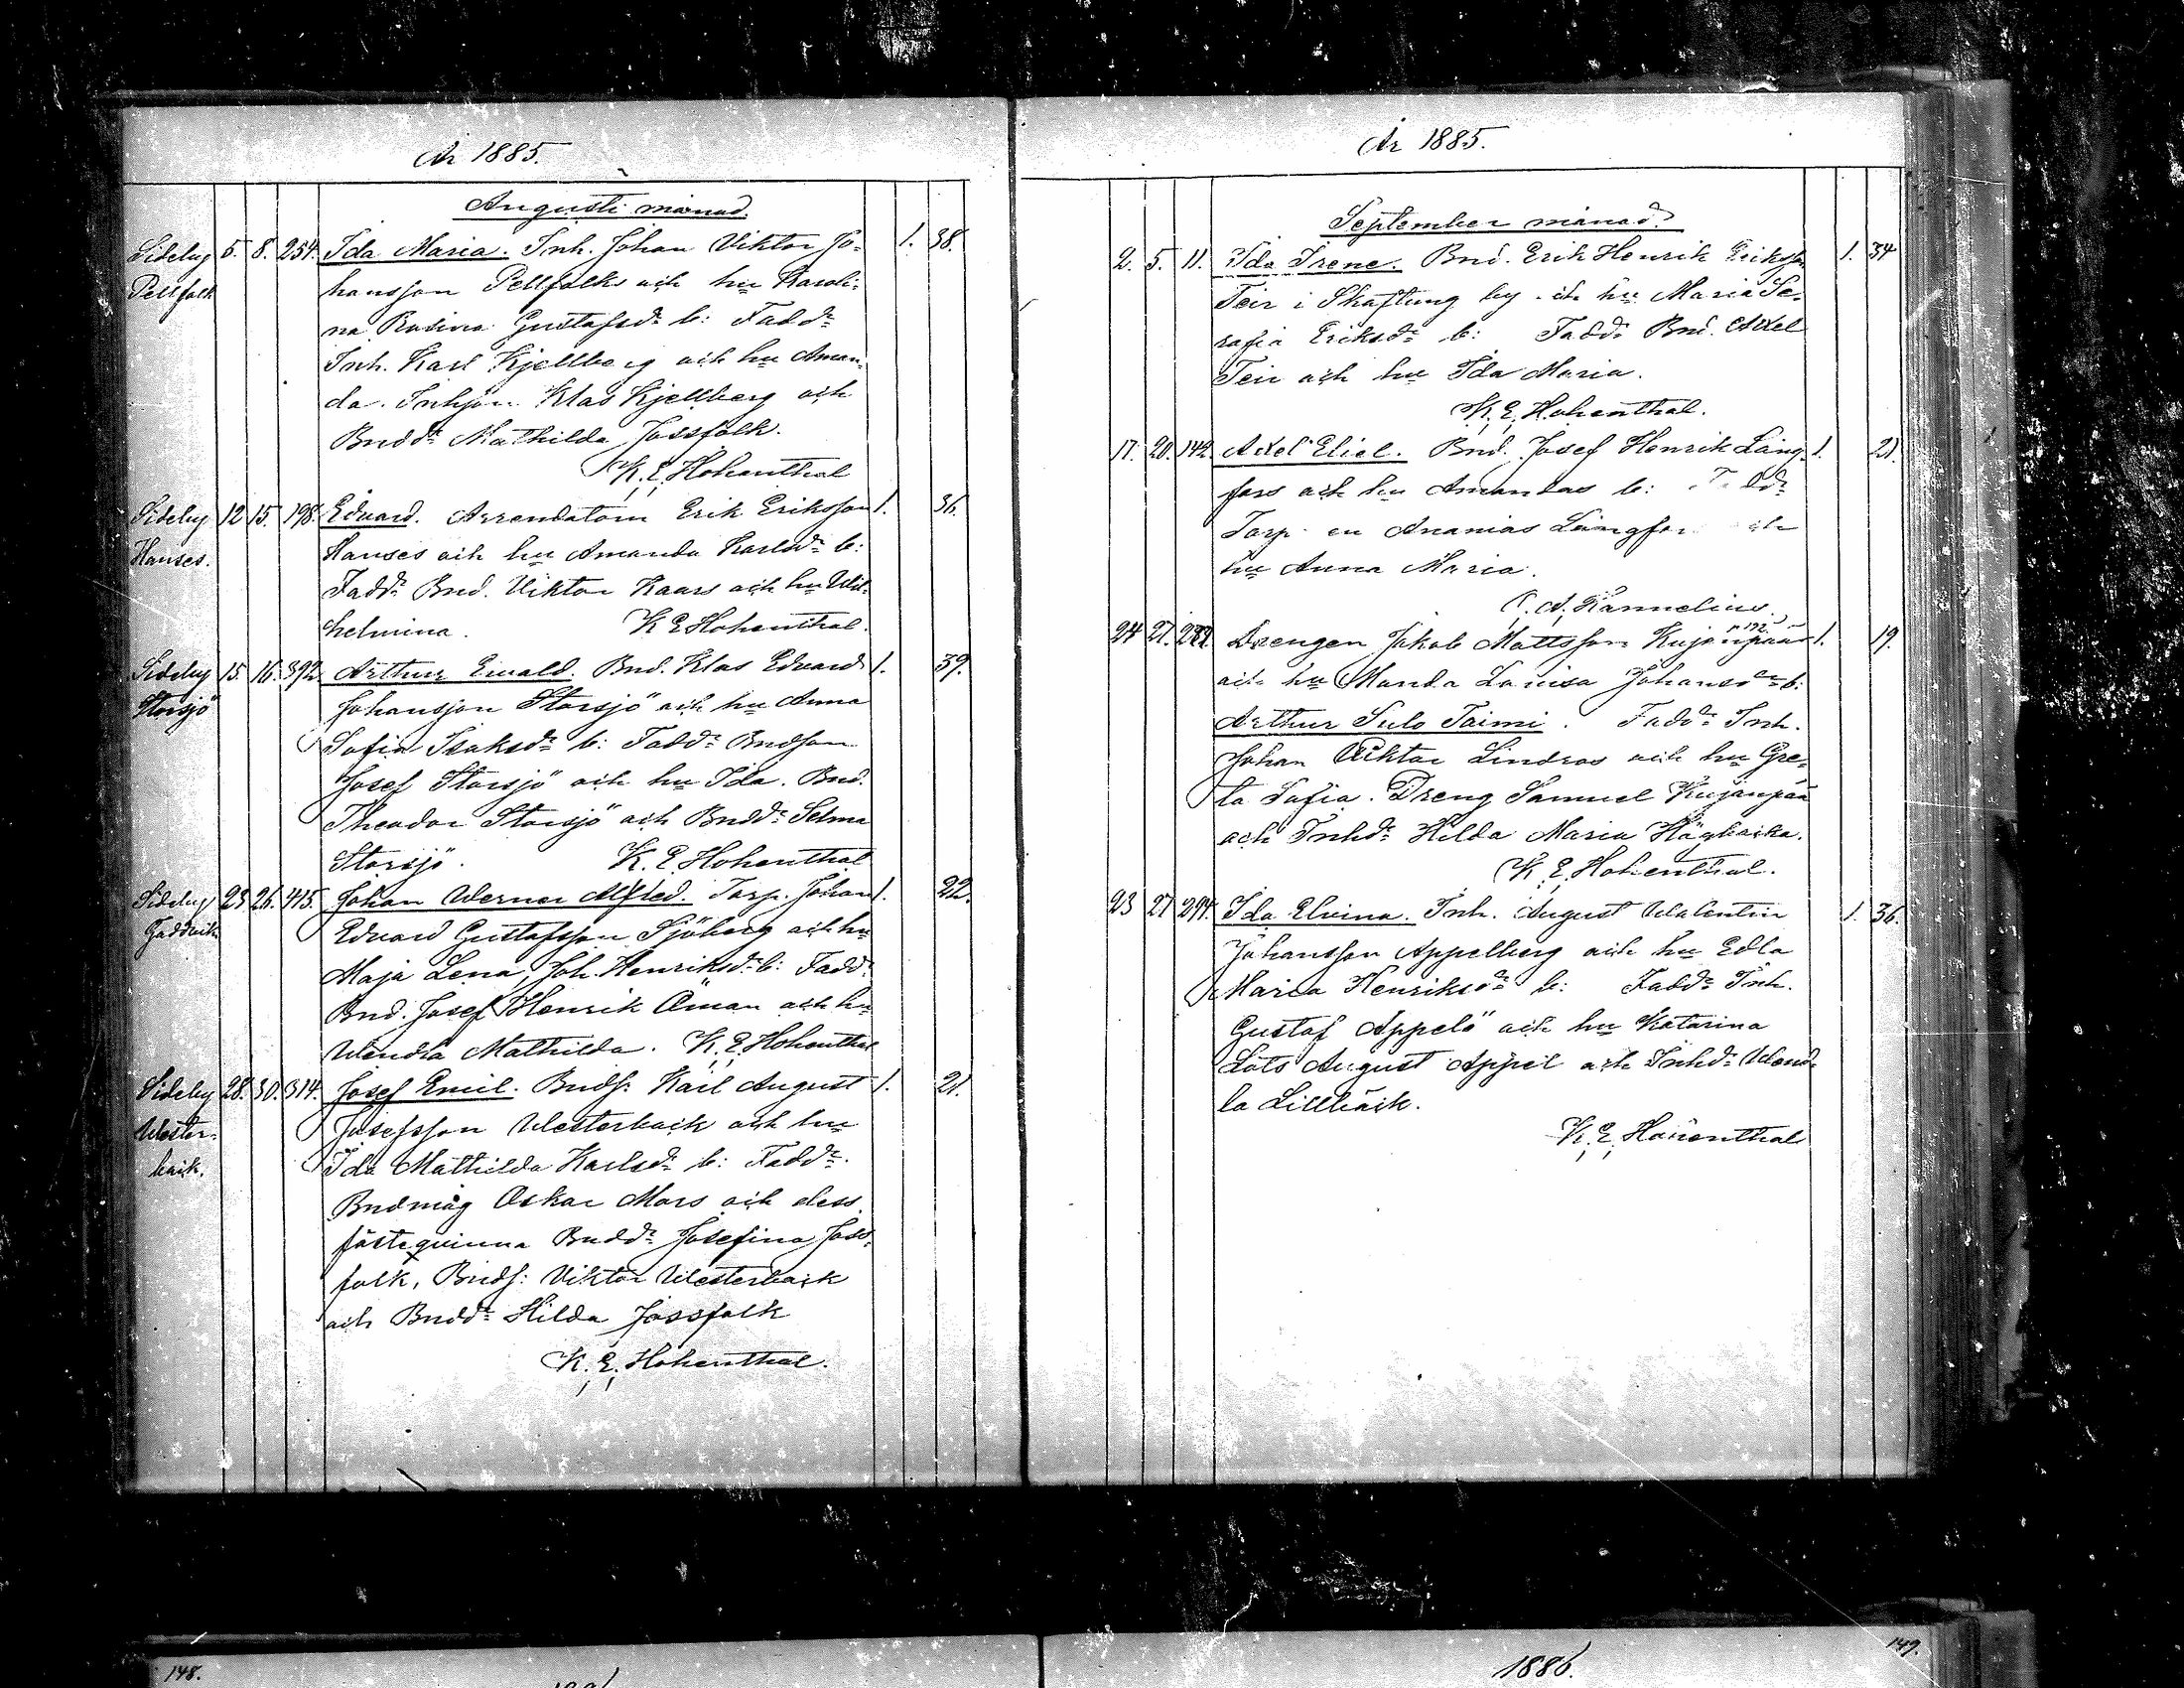 År 1885.
Augusti månad.
Sideby 5. 8. 254. Ida Maria. Inh. Johan Viktor Jo- 1. 38.
Pellfolk hansson Pellfolk och hu Karoli-
na Rosina Gustafsdr b: Faddr
Inh. Karl Kjellberg och hu Aman-
da. Inhson Klas Kjellberg och
Bnddr Mathilda Jossfolk.
K. E. Hohenthal
Sideby 12 15. 198. Edvard. Arrendatorn Erik Eriksson 1. 36.
Hanses. Hanses och hu Amanda Karlsdr b:
Faddr Bnd. Viktor Kaars och hu Wil-
helmina. K E Hohenthal.
Sideby 15. 16. 392 Arthur Ewald. Bnd. Klas Edvard 1. 39.
Storsjö Johansson Storsjö och hu Anna
Sofia Isaksdr b: Faddr Bndson
Josef Storsjö och hu Ida. Bnd.
Theodor Storsjö och Bnddr Selma
Storsjö. K. E. Hohenthal
Sideby 23 26. 415. Johan Werner Alfred. Torp. Johan 1. 22.
Gaddvik Edvard Gustafsson Sjöberg och hu
Maja Lena Joh. Henriksdr b: Faddr
Bnd. Josef Henrik Öman och hu
Wendla Mathilda. K. E. Hohenthal
Sideby 28. 30. 314. Josef Emil. Bnds: Karl August 1. 21.
Wester- Josefsson Westerback och hu
back. Ida Mathilda Karlsdr b: Faddr
Bndmåg Oskar Mars och dess
fästeqvinna Bnddr Josefina Joss-
folk, Bnds: Viktor Westerback
och Bnddr Hilda Jossfolk
K. E. Hohenthal.
År 1885.
September månad
2. 5. 11. Ida Irene. Bnd. Erik Henrik Eriksson 1. 34
Teir i Skaftung by och hu Maria Se-
rafia Eriksdr b: Faddr Bnd. Axel
Teir och hu Ida Maria.
K. E. Hohenthal.
17. 20. 142. Axel Eliel. Bnd. Josef Henrik Lång- 1. 21.
fors och hu Amandas b: Faddr
Torp en Ananias Långfor och
hu Anna Maria.
A. Rannelius.
p 192
24 27. Drengen Jakob Mattsson Kujanpää 1. 19.
och hu Manda Lovisa Johansdr b:
Arthur Sulo Taimi. Faddr Inh.
Johan Viktor Lindros och hu Gre-
ta Sofia. Dreng Samuel Kujanpää
och Inhdr Hilda Maria Högback.
K. E. Hohenthal.
23 27 291. Ida Elvina. Inh. August Walentin 1. 36.
Johansson Appelberg och hu Edla
Maria Henriksdr b: Faddr Inh.
Gustaf Appelö och hu Katarina
Lots August Appel och Inhdr Wend-
la Lillback.
K. E. Hohenthal
148. 149.
1886.